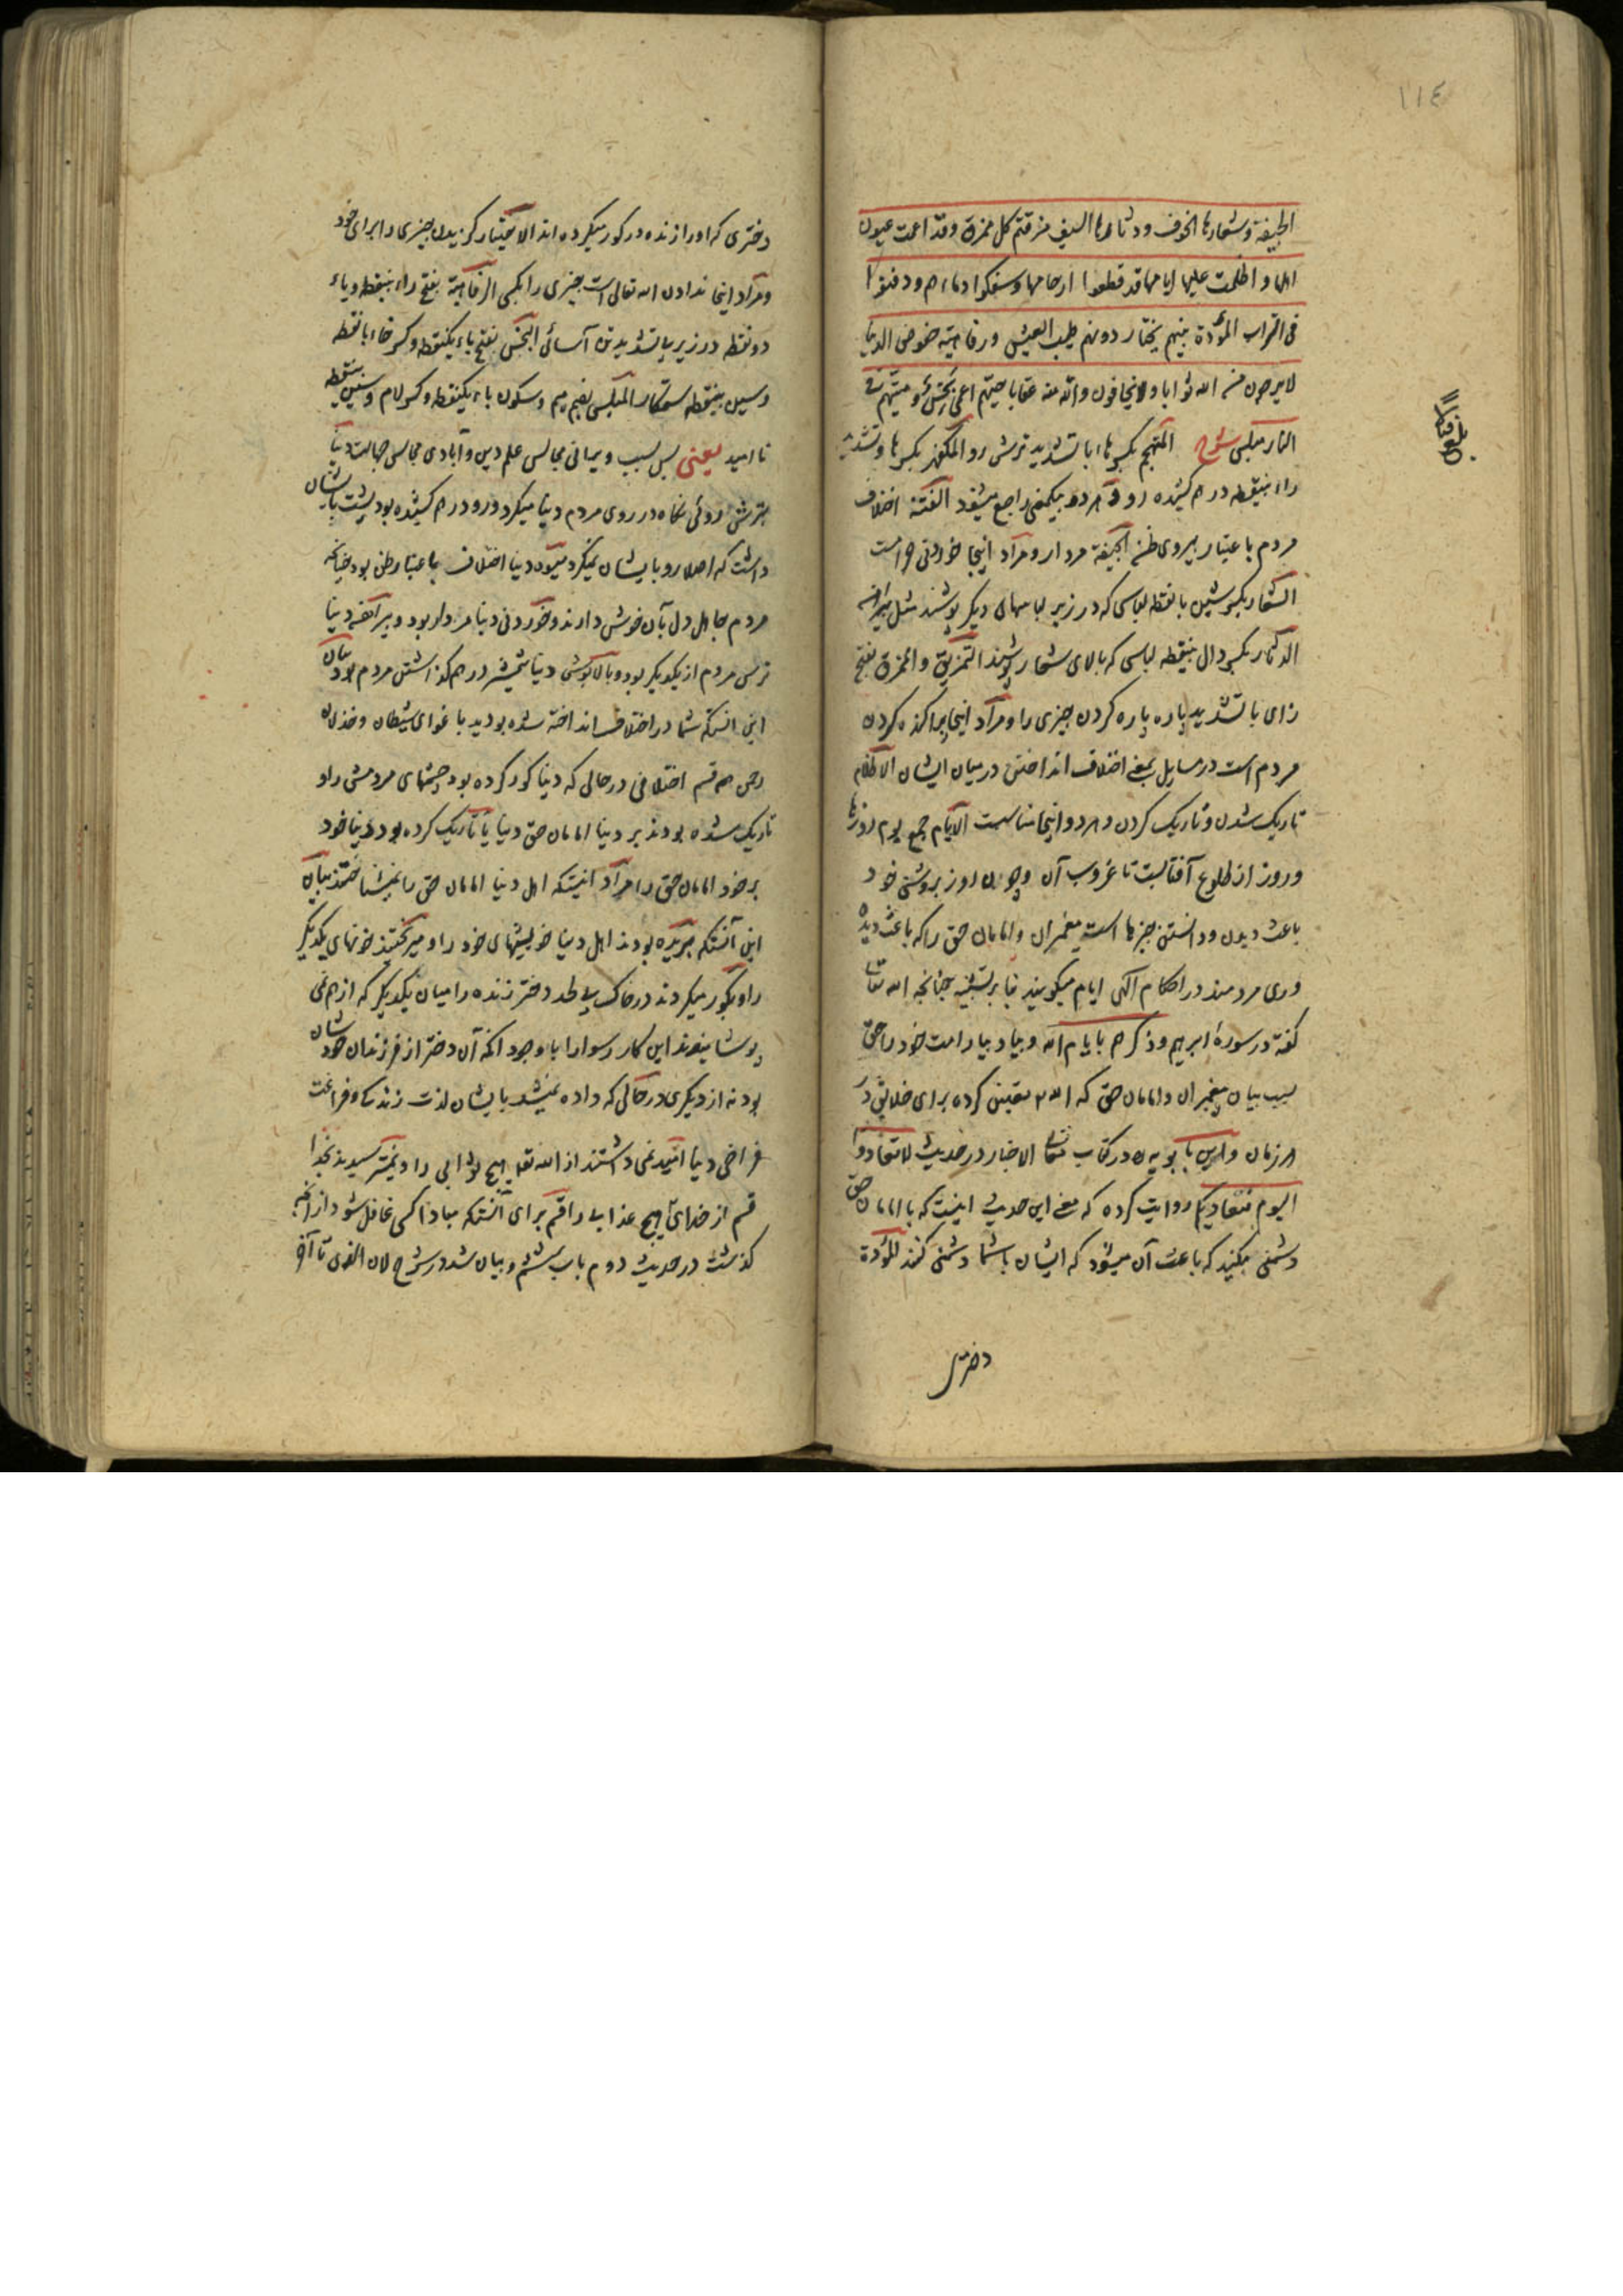 ١١٤
الجیفة و شعارها الخوف و دثارها السیف مزقتم کل ممزق و قد اعمت عیون
اهلها و اظلمت علیها ایامها قد قطعوا ارحامها و سفکوا دماءهم و دفنوا
فی التراب المؤدة بینهم یختار دونهم طیب العیش و رفاهیة خفوض الدنیا
لا یرجون من الله ثوابا و لا یخافون والله منه عقابا حیهم اعمی بخس و میتهم فی
النار مبلس شرح المتهجم بکسر هاء با تشدید ترش رو المکفهر بکسر ها و تشدید
راء بینقطه درهم کشیده رو و هر دو بیک معنی راجع میشود الفتنة اختلاف
مردم باعتبار پیروی ظن الجیفة مردار و مراد اینجا خوردنی حرامست
الشعار بکسر شین بانقطه لباسی که در زیر لباسهای دیگر پوشند مثل پیراهن
الدثار بکسر دال بینقطه لباسی که بالای شعار پوشند التمزیق و الممزق بفتح
زای با تشدید پاره پاره کردن چیزی را و مراد اینجا پراکنده کردن
مردم است در مسایل بمعنی اختلاف انداختن در میان ایشان الاظلام
تاریک شدن و تاریک کردن و هر دو اینجا مناسبست الایام جمع یوم روزها
و روز از طلوع آفتابست تا غروب آن و چون روز بروشنی خود
باعث دیدن و دانستن چیزها است پیغمبران و امامان حق را که باعث دیده
وری مردمند در احکام الهی ایام میگویند بنا بر تشبیه چنانچه الله تعالی
گفته در سورهٔ ابرهیم و ذکرهم بایام الله و بیاد بیار امت خود را حق
بسبب بیان پیغمبران و امامان حق که الله تعیین کرده برای خلایق در
هر زمان و ابن بابویه در کتاب معانی الاخبار در حدیث لا تعادوا
الیوم فتعادیکم روایت کرده که معنی این حدیث اینست که با امامان حق
دشمنی مکنید که باعث آن میشود که ایشان با شما دشمنی کنند المؤدة
دختری
دختری که او را زنده در گور میکرده اند الاختیار گزیدن چیزی را برای خود
و مراد اینجا ندادن الله تعالی است چیزی را بکسی الرفاهیة بفتح راء بینقطه و یاء
دو نقطه در زیر با تشدید تن آسائی البخس بفتح باء یکنقطه و کسر خاء با نقطه
و سین بینقطه ستمکار المبلس بضم میم و سکون باء یکنقطه و کسر لام و سین بینقطه
ناامید یعنی پس بسبب ویرانی مجالس علم دین و آبادی مجالس جهالت دنیا
بترش روئی نگاه در روی مردم دنیا میکرد و رو درهم کشیده بود پشت بایشان
داشت که اصلا رو بایشان نمیکرد میوهٔ دنیا اختلاف باعتبار ظن بود چنانکه
مردم جاهل دل بآن خوش دارند و خوردنی دنیا مردار بود و پیراهن دنیا
ترس مردم از یکدیگر بود و بالاپوش دنیا شمشیر درهم گذاشتن مردم بود بیان
این آنستکه شما در اختلاف انداخته شده بودید باغوای شیطان و خذلان
رحمن هر قسم اختلافی در حالی که دنیا کور کرده بود چشمهای مردمش را و
تاریک شده بودند بر دنیا امامان حق دنیا یا تاریک کرده بود دنیا خود
بر خود امامان حق را مراد اینستکه اهل دنیا امامان حق را نمیشناختند بیان
این آنستکه بریده بودند اهل دنیا خویشیهای خود را و میریختند خونهای یکدیگر
را و بگور میکردند در خاک بی لحد دختر زنده را میان یکدیگر که از هم نمی
پوشانیدند این کار رسوا را با وجود آنکه آن دختر از فرزندان خودشان
بود نه از دیگری در حالی که داده نمیشد بایشان لذت زندگی و فراغت
فراخی دنیا امید نمی داشتند از الله تعالی هیچ ثوابی را و نمیترسیدند بخدا
قسم از خدای هیچ عذابی را قسم برای آنستکه مبادا کسی غافل شود از آنچه
گذشت در حدیث دوم باب ششم و بیان شد در شرح لان الذی تا آخر